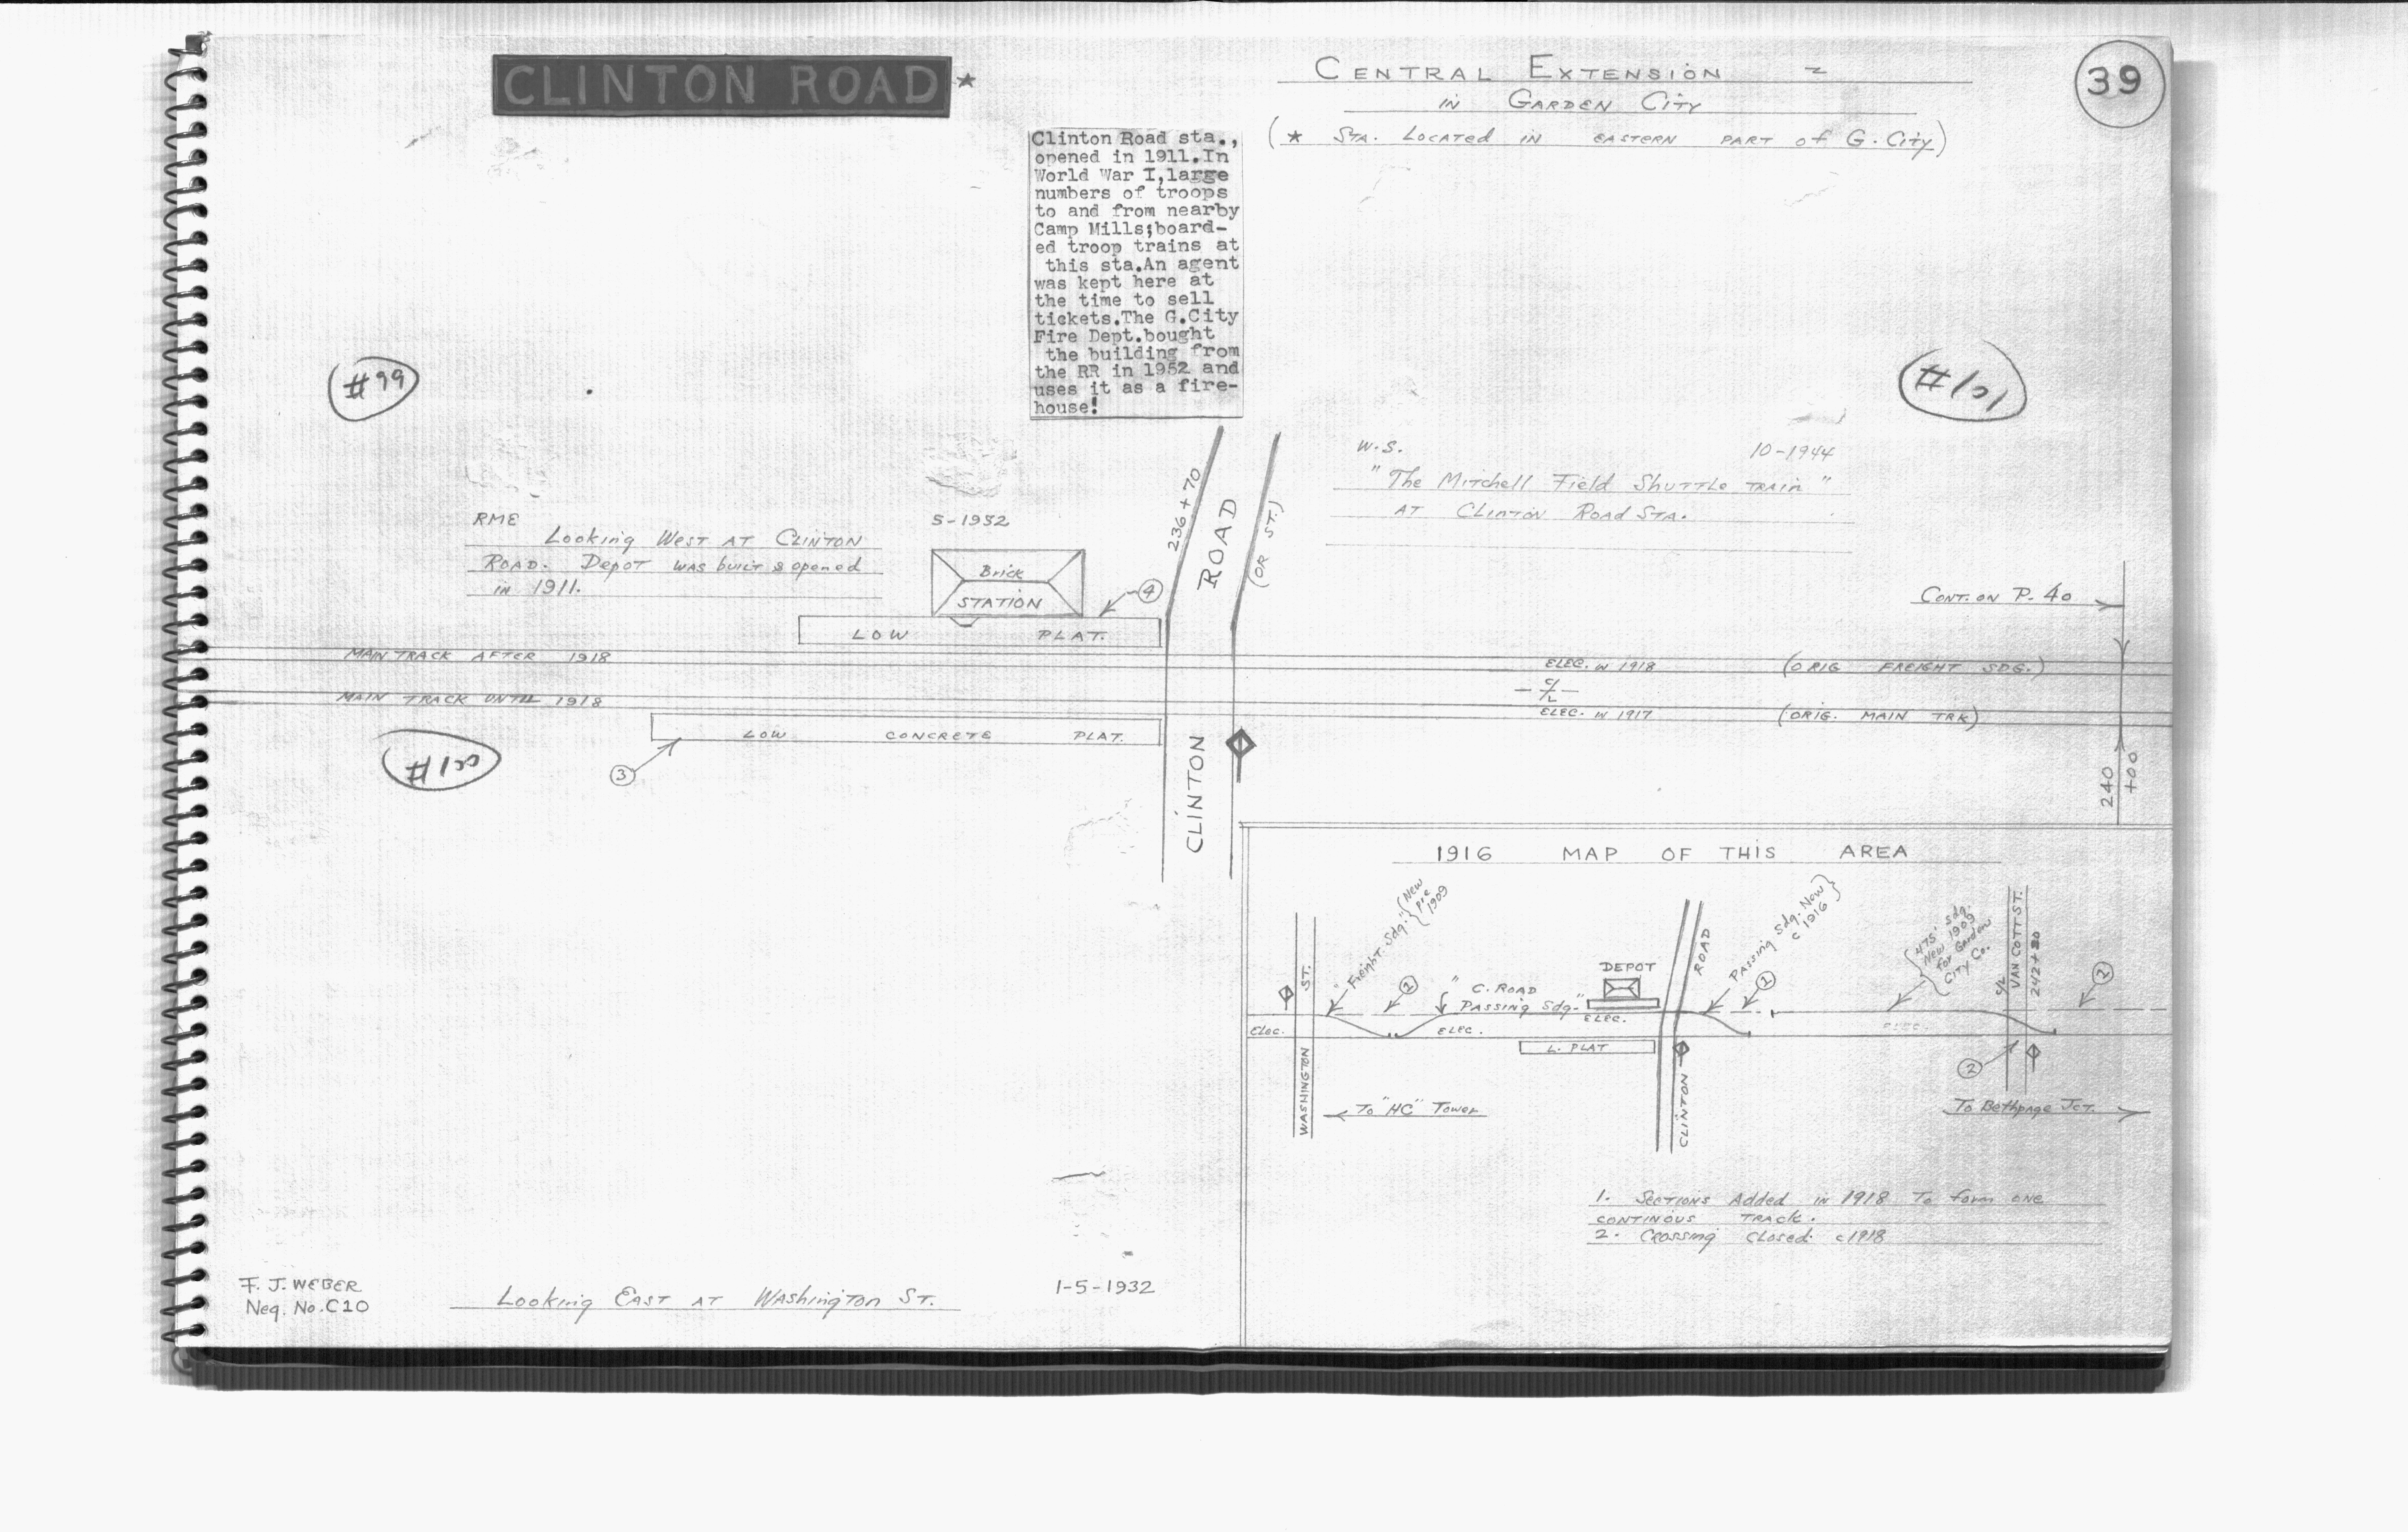 CLINTON ROAD ★
CENTRAL EXTENSION ~
IN GARDEN CITY
(★ STA. LOCATED IN EASTERN PART of G. CITY)
39
Clinton Road sta.,
opened in 1911.In
World War I,large
numbers of troops
to and from nearby
Camp Mills;board-
ed troop trains at
this sta.An agent
was kept here at
the time to sell
tickets.The G.City
Fire Dept.bought
the building from
the RR in 1952 and
uses it as a fire-
house!
#99
#101
W.S. 10-1944
"The Mitchell Field Shuttle Train"
AT Clinton Road STA.
RME 5-1952
Looking West AT CLINTON
ROAD. Depot was built & opened
in 1911.
Brick
STATION
4
236+70
ROAD
(OR ST.)
CONT. ON P. 40
LOW PLAT.
MAIN TRACK AFTER 1918
ELEC. in 1918 (ORIG FREIGHT SDG.)
C/L
MAIN TRACK UNTIL 1918
ELEC. in 1917 (ORIG. MAIN TRK)
LOW CONCRETE PLAT.
3
#100
CLINTON
240
+00
1916 MAP OF THIS AREA
"Freight Sdg." {New
pre
1909
Passing Sdg. Now}
c 1916
{475' sdg.
New 1909
for Garden
City Co.
VAN COTT ST.
ST.
1
"C. ROAD
PASSING Sdg."
DEPOT
ROAD
1
2
ELEC.
ELEC.
ELEC.
ELEC.
L. PLAT
WASHINGTON
CLINTON
2
← To "HC" Tower
To Bethpage JCT. →
1. SECTIONS Added in 1918 To form ONE
CONTINOUS TRACK.
2. CROSSING CLOSED c1918
F. J. WEBER
Neg. No. C10
Looking EAST AT WASHINGTON ST.
1-5-1932